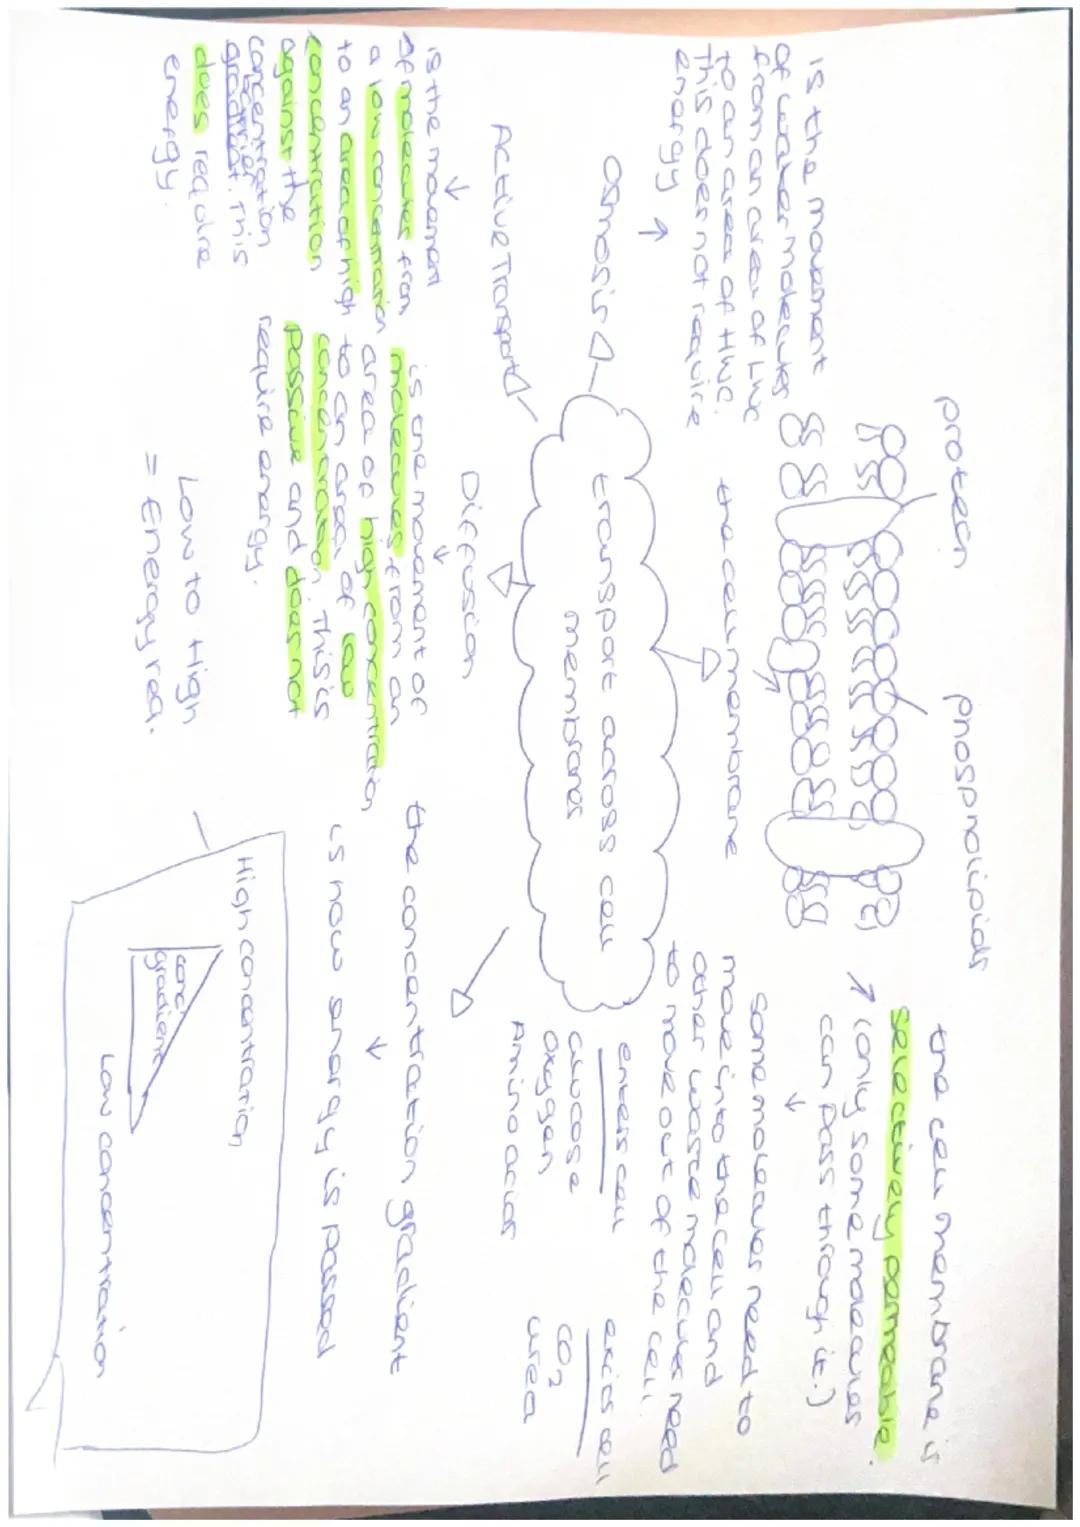 protein
phospholipids
the cell membrane is
selectively permeable.
(only some molecules
can pass through it.)
some molecules need to
move into the cell and
other waste molecules need
to move out of the cell
enters cell
glucose
oxygen
Amino acids
exits cell
CO2
urea
is the movement
of water molecules
from an area of LWC
to an area of HWC.
This does not require
energy
the cell membrane
Osmosis
transport across cell
membranes
Active Transport
is the movement
of molecules from
a low concentration
to an area of high
concentration
against the
concentration
gradient. This
does require
energy.
Diffusion
is the movement of
molecules from an
area of high concentration
to an area of low
concentration. This is
passive and does not
require energy.
the concentration gradient
is how energy is passed
Low to High
= Energy req.
High concentration
conc.
gradient
Low concentration